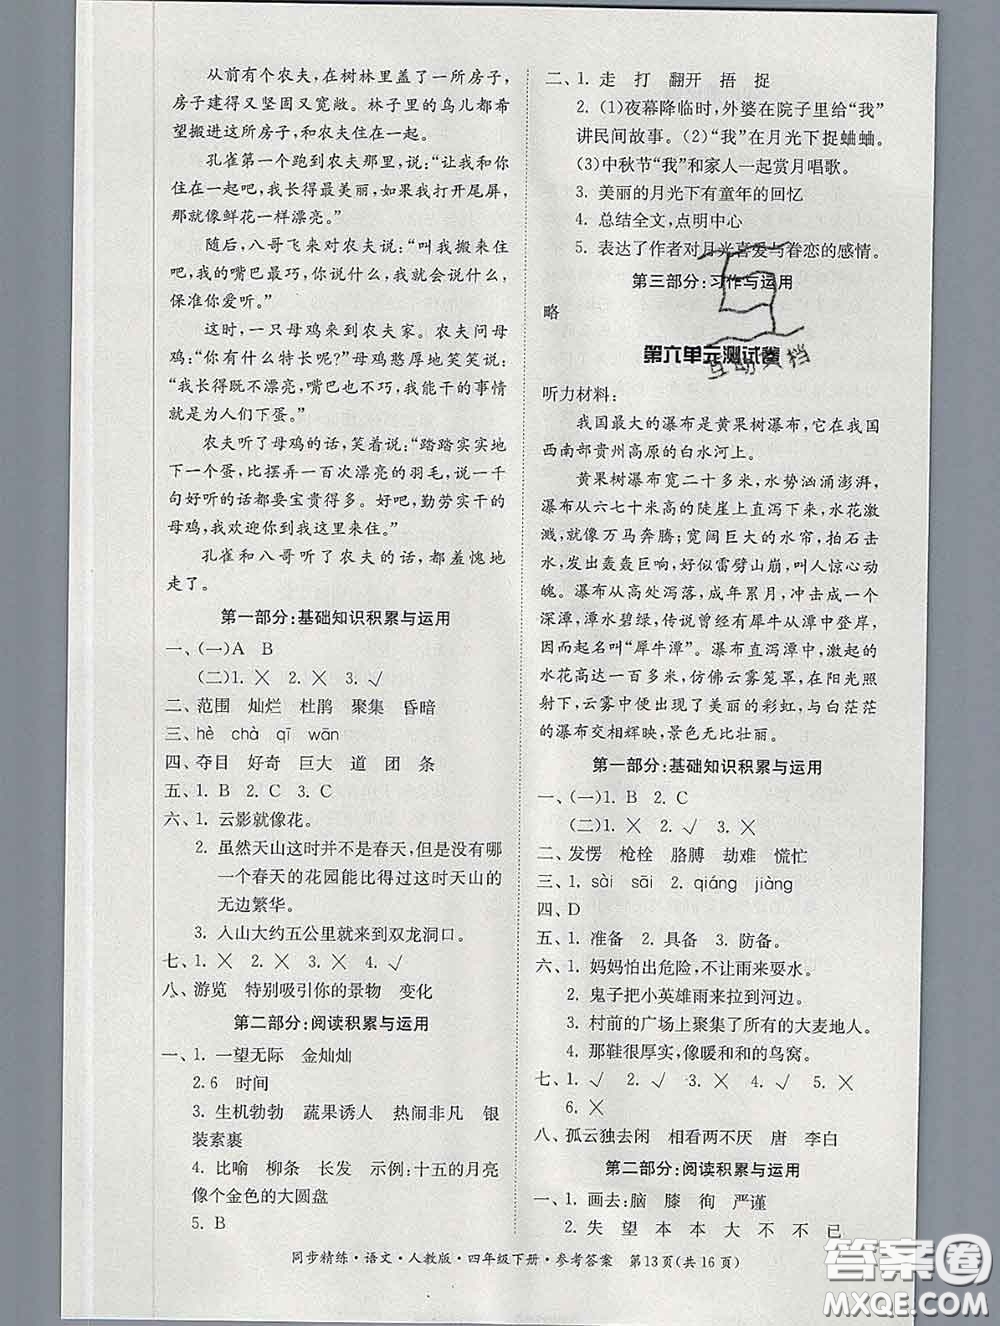 从前有个农夫,在树林里盖了一所房子,
房子建得又坚固又宽敞。林子里的鸟儿都希
望搬进这所房子,和农夫住在一起。
孔雀第一个跑到农夫那里,说:“让我和你
住在一起吧,我长得最美丽,如果我打开尾屏,
那就像鲜花一样漂亮。”
随后,八哥飞来对农夫说:“叫我搬来住
吧,我的嘴巴最巧,你说什么,我就会说什么,
保准你爱听。”
这时,一只母鸡来到农夫家。农夫问母
鸡:“你有什么特长呢?”母鸡憨厚地笑笑说:
“我长得既不漂亮,嘴巴也不巧,我能干的事情
就是为人们下蛋。”
农夫听了母鸡的话,笑着说:“踏踏实实地
下一个蛋,比摆弄一百次漂亮的羽毛,说一千
句好听的话都要宝贵得多。好吧,勤劳实干的
母鸡,我欢迎你到我这里来住。”
孔雀和八哥听了农夫的话,都羞愧地
走了。
第一部分:基础知识积累与运用
一、(一)A B
(二)1. ╳ 2. ╳ 3. √
二、范围 灿烂 杜鹃 聚集 昏暗
三、hè chà qī wān
四、夺目 好奇 巨大 道 团 条
五、1. B 2. C 3. C
六、1. 云影就像花。
2. 虽然天山这时并不是春天,但是没有哪
一个春天的花园能比得过这时天山的
无边繁华。
3. 入山大约五公里就来到双龙洞口。
七、1. ╳ 2. ╳ 3. ╳ 4. √
八、游览 特别吸引你的景物 变化
第二部分:阅读积累与运用
一、1. 一望无际 金灿灿
2.6 时间
3. 生机勃勃 蔬果诱人 热闹非凡 银
装素裹
4. 比喻 柳条 长发 示例:十五的月亮
像个金色的大圆盘
5. B
二、1. 走 打 翻开 捂 捉
2. (1)夜幕降临时,外婆在院子里给“我”
讲民间故事。(2)“我”在月光下捉蛐蛐。
(3)中秋节“我”和家人一起赏月唱歌。
3. 美丽的月光下有童年的回忆
4. 总结全文,点明中心
5. 表达了作者对月光喜爱与眷恋的感情。
第三部分:习作与运用
略
第六单元测试卷
听力材料:
我国最大的瀑布是黄果树瀑布,它在我国
西南部贵州高原的白水河上。
黄果树瀑布宽二十多米,水势汹涌澎湃,
瀑布从六七十米高的陡崖上直泻下来,水花激
溅,就像万马奔腾;宽阔巨大的水帘,拍石击
水,发出轰轰巨响,好似雷劈山崩,叫人惊心动
魄。瀑布从高处泻落,成年累月,冲击成一个
深潭,潭水碧绿,传说曾经有犀牛从潭中登岸,
因而起名叫“犀牛潭”。瀑布直泻潭中,溅起的
水花高达一百多米,仿佛云雾笼罩,在阳光照
射下,云雾中出现了美丽的彩虹,与白茫茫
的瀑布交相辉映,景色无比壮丽。
第一部分:基础知识积累与运用
一、(一)1. B 2. C
(二)1. ╳ 2. √ 3. ╳
二、发愣 枪栓 胳膊 劫难 慌忙
三、1. sài sāi 2. qiáng jiàng
四、D
五、1. 准备 2. 具备 3. 防备。
六、1. 妈妈怕出危险,不让雨来耍水。
2. 鬼子把小英雄雨来拉到河边。
3. 村前的广场上聚集了所有的大麦地人。
4. 那鞋很厚实,像暖和和的鸟窝。
七、1. √ 2. √ 3. √ 4. √ 5. ╳
6. ╳
八、孤云独去闲 相看两不厌 唐 李白
第二部分:阅读积累与运用
一、1. 画去:脑 膝 徇 严谨
2. 失 望 本 本 大 不 不 已
同步精练·语文·人教版·四年级下册·参考答案 第13页(共16页)
互助文档
答案圈
MXQE.COM